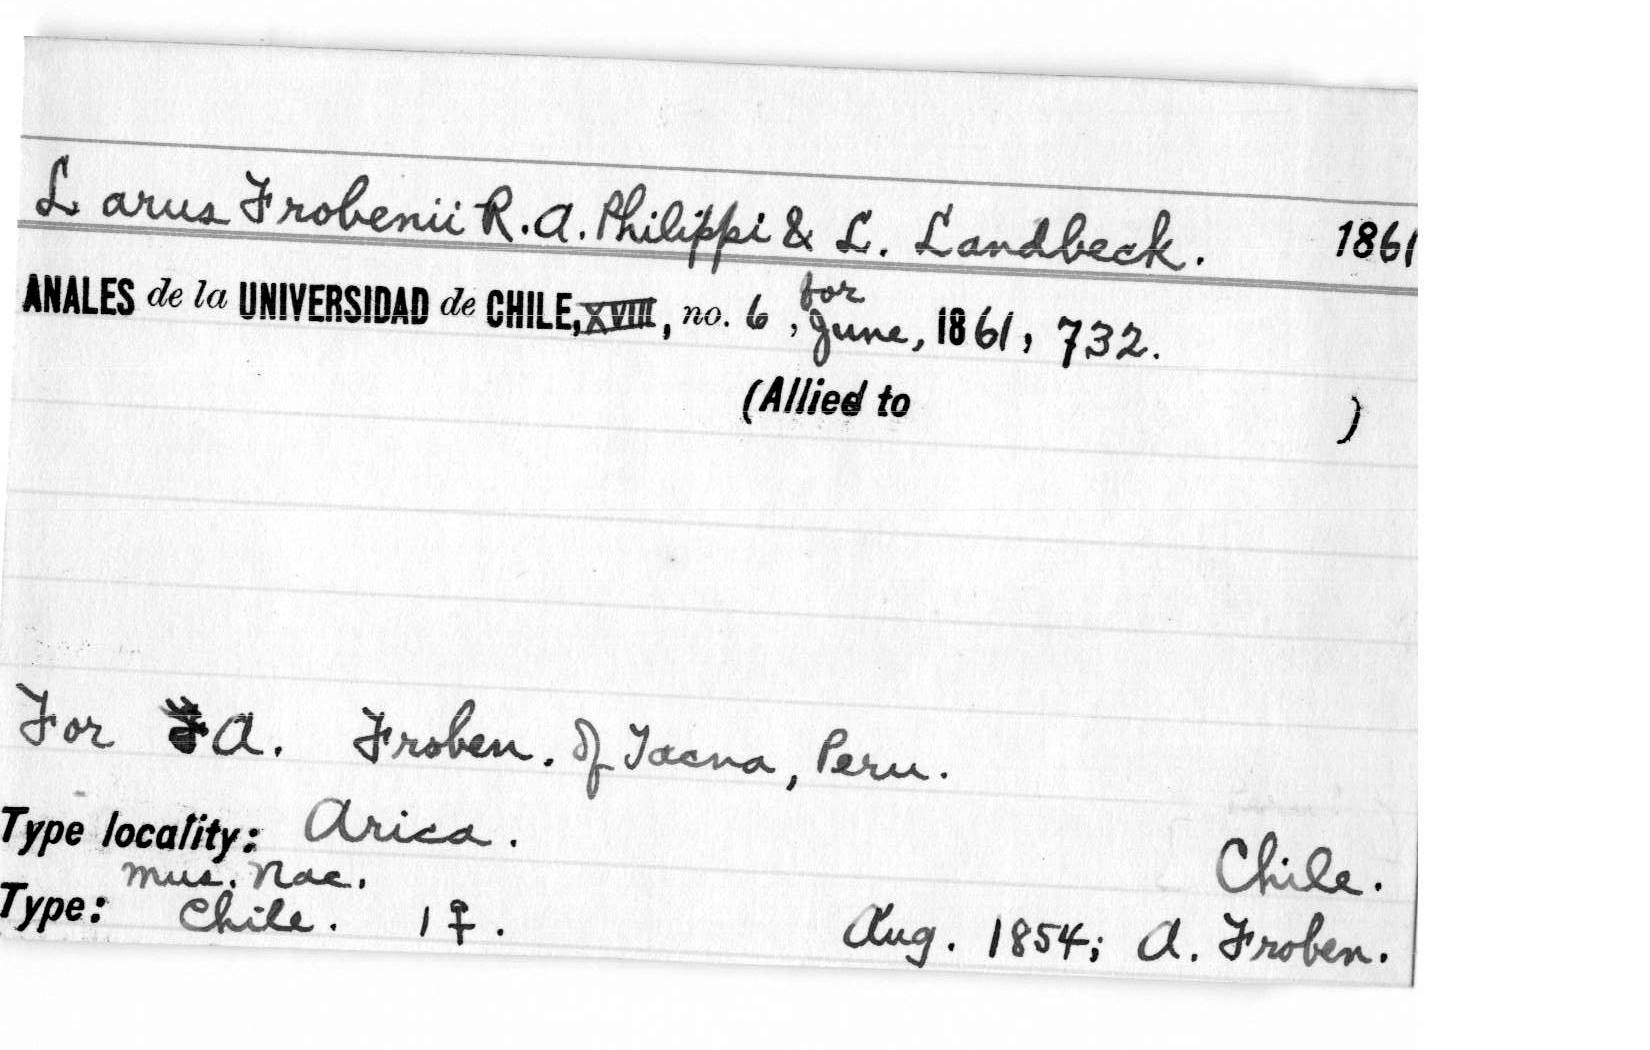 Larus Frobenii R.A. Philippi & L. Landbeck. 1861
ANALES de la UNIVERSIDAD de CHILE, XVIII, no. 6, for June, 1861, 732.
(Allied to )
For A. Froben. of Tacna, Peru.
Type locality: Arica. Chile.
Type: Mus. Nac. Chile. 1♀. Aug. 1854; A. Froben.